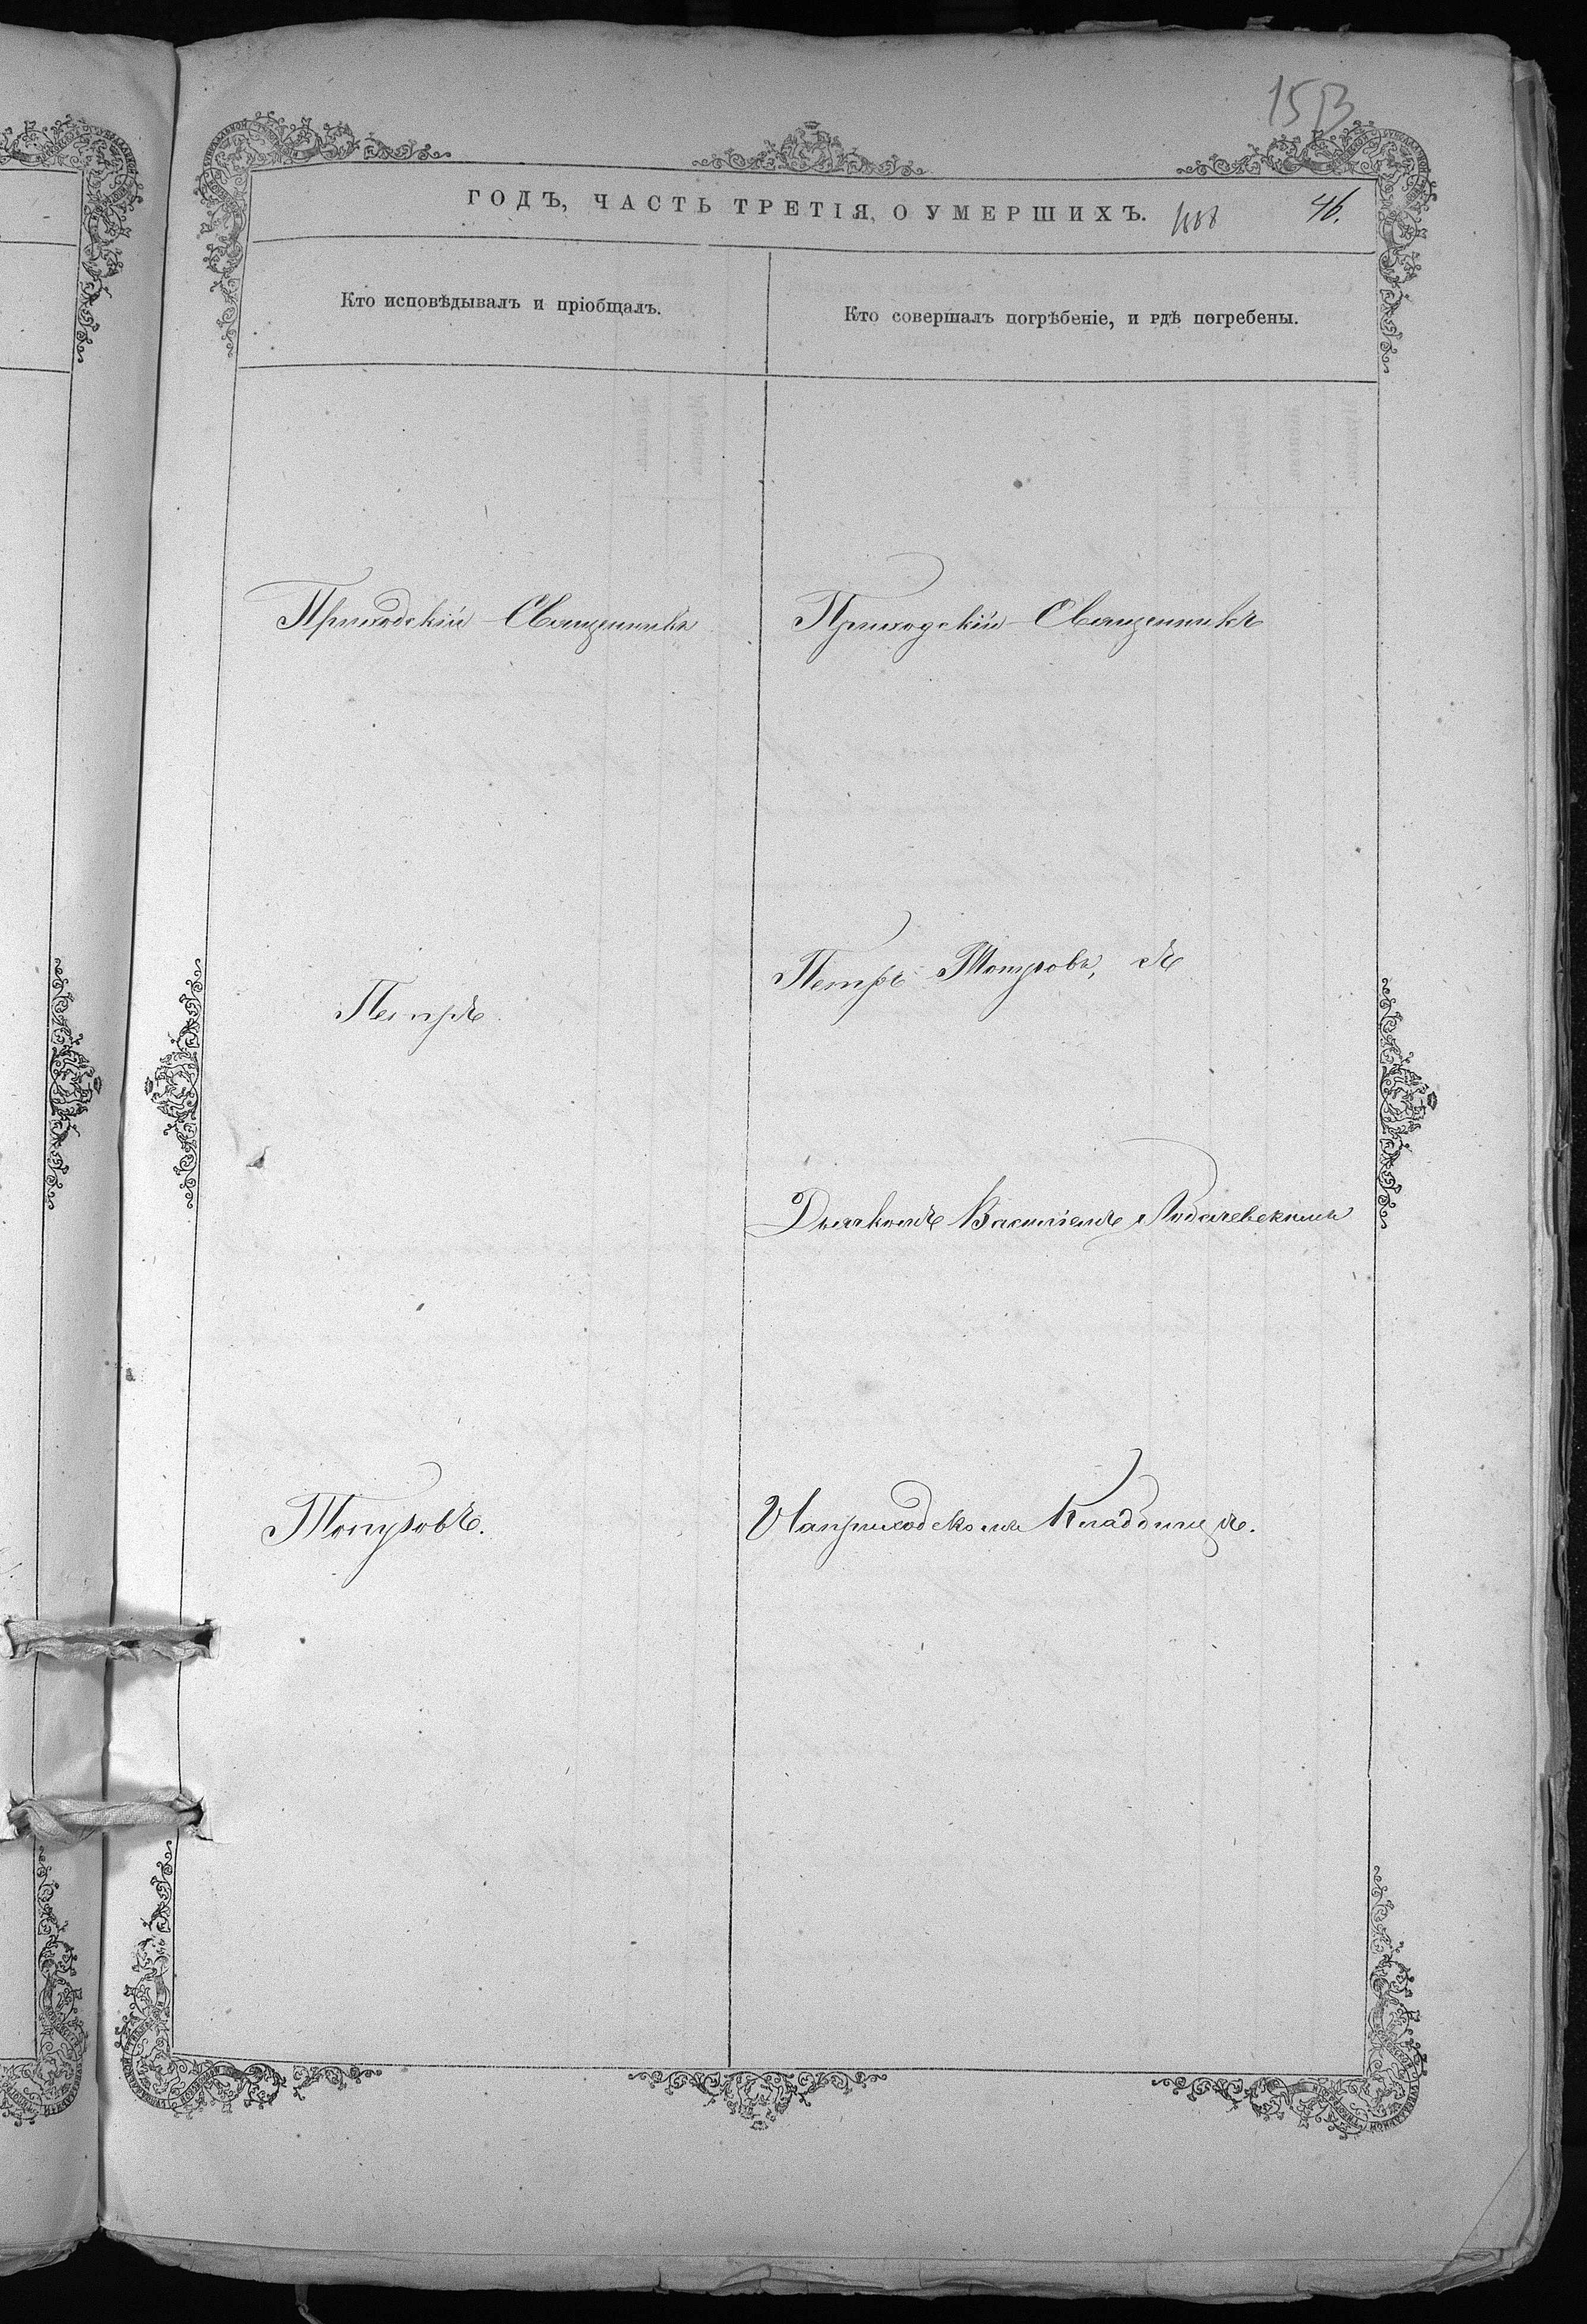 153
ГОДЪ, ЧАСТЬ ТРЕТІЯ, О УМЕРШИХЪ. 46.
Кто исповѣдывалъ и пріобщалъ.
Кто совершалъ погрѣбеніе, и гдѣ погребены.
Приходскій Священникъ
Петръ
Топуровъ.
Приходскій Священникъ
Петръ Топуровъ, съ
Дьячкомъ Василіемъ
Наприходскомъ Кладбищѣ.